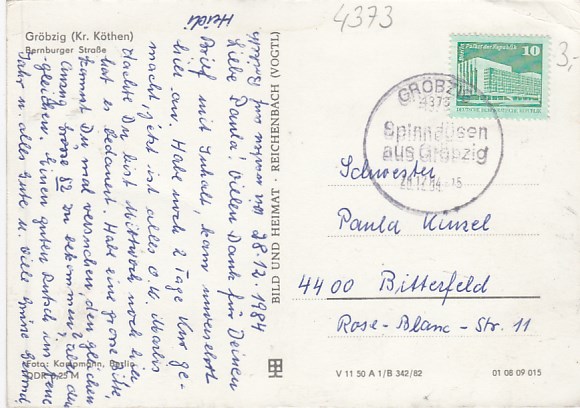 4373
Gröbzig (Kr. Köthen)
Bernburger Straße
3,-
Palast der Republik
10
DEUTSCHE DEMOKRATISCHE REPUBLIK
GRÖBZIG
4373
Spinndüsen
aus Gröbzig
28.12.84.-15
Schwester
Paula Künzel
4400 Bitterfeld
Rose-Blanc-Str. 11
BILD UND HEIMAT · REICHENBACH (VOGTL)
28.12.1984
Liebe Paula! Vielen Dank für Deinen
Brief mit Inhalt, kam unversehrt
hier an. Habe noch 2 Tage Kur ge-
macht, jetzt ist alles o.k. Martin
dachte Du bist Mittwoch noch hier
hat es bedauert. Habe eine große Bitte,
kannst Du mal versuchen den gleichen
Anzug Größe 52 zu bekommen?
gleichen. Einen guten Rutsch ins neue
Jahr u. alles Gute u. viele Grüße
Heidi
Foto: Kampmann, Berlin
DDR 0,25 M
V 11 50 A 1/B 342/82
01 08 09 015